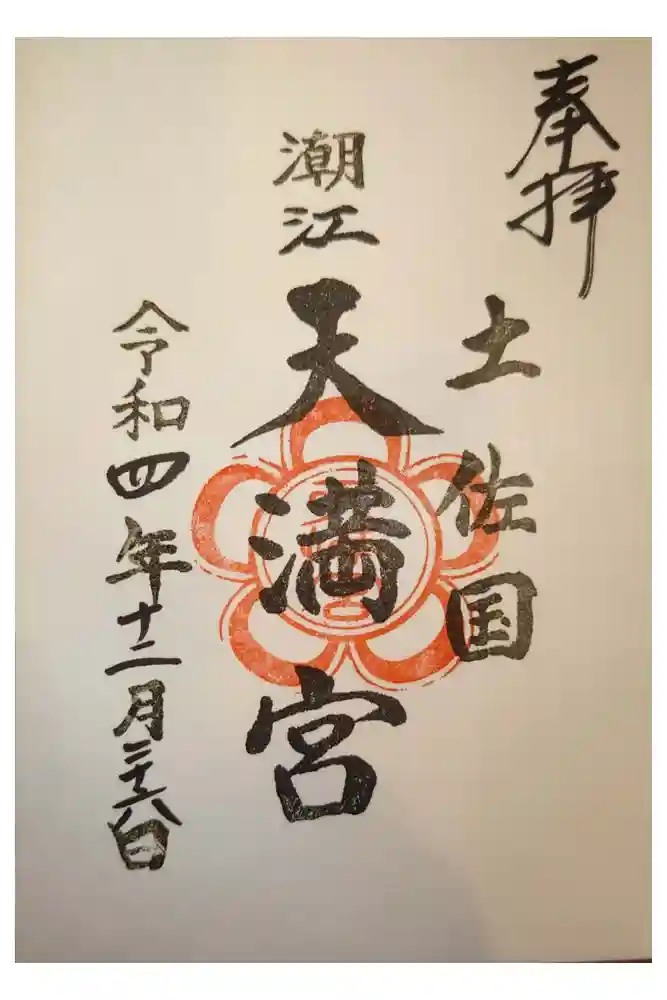 奉拝
土佐国
潮江天満宮
令和四年十二月二十八日